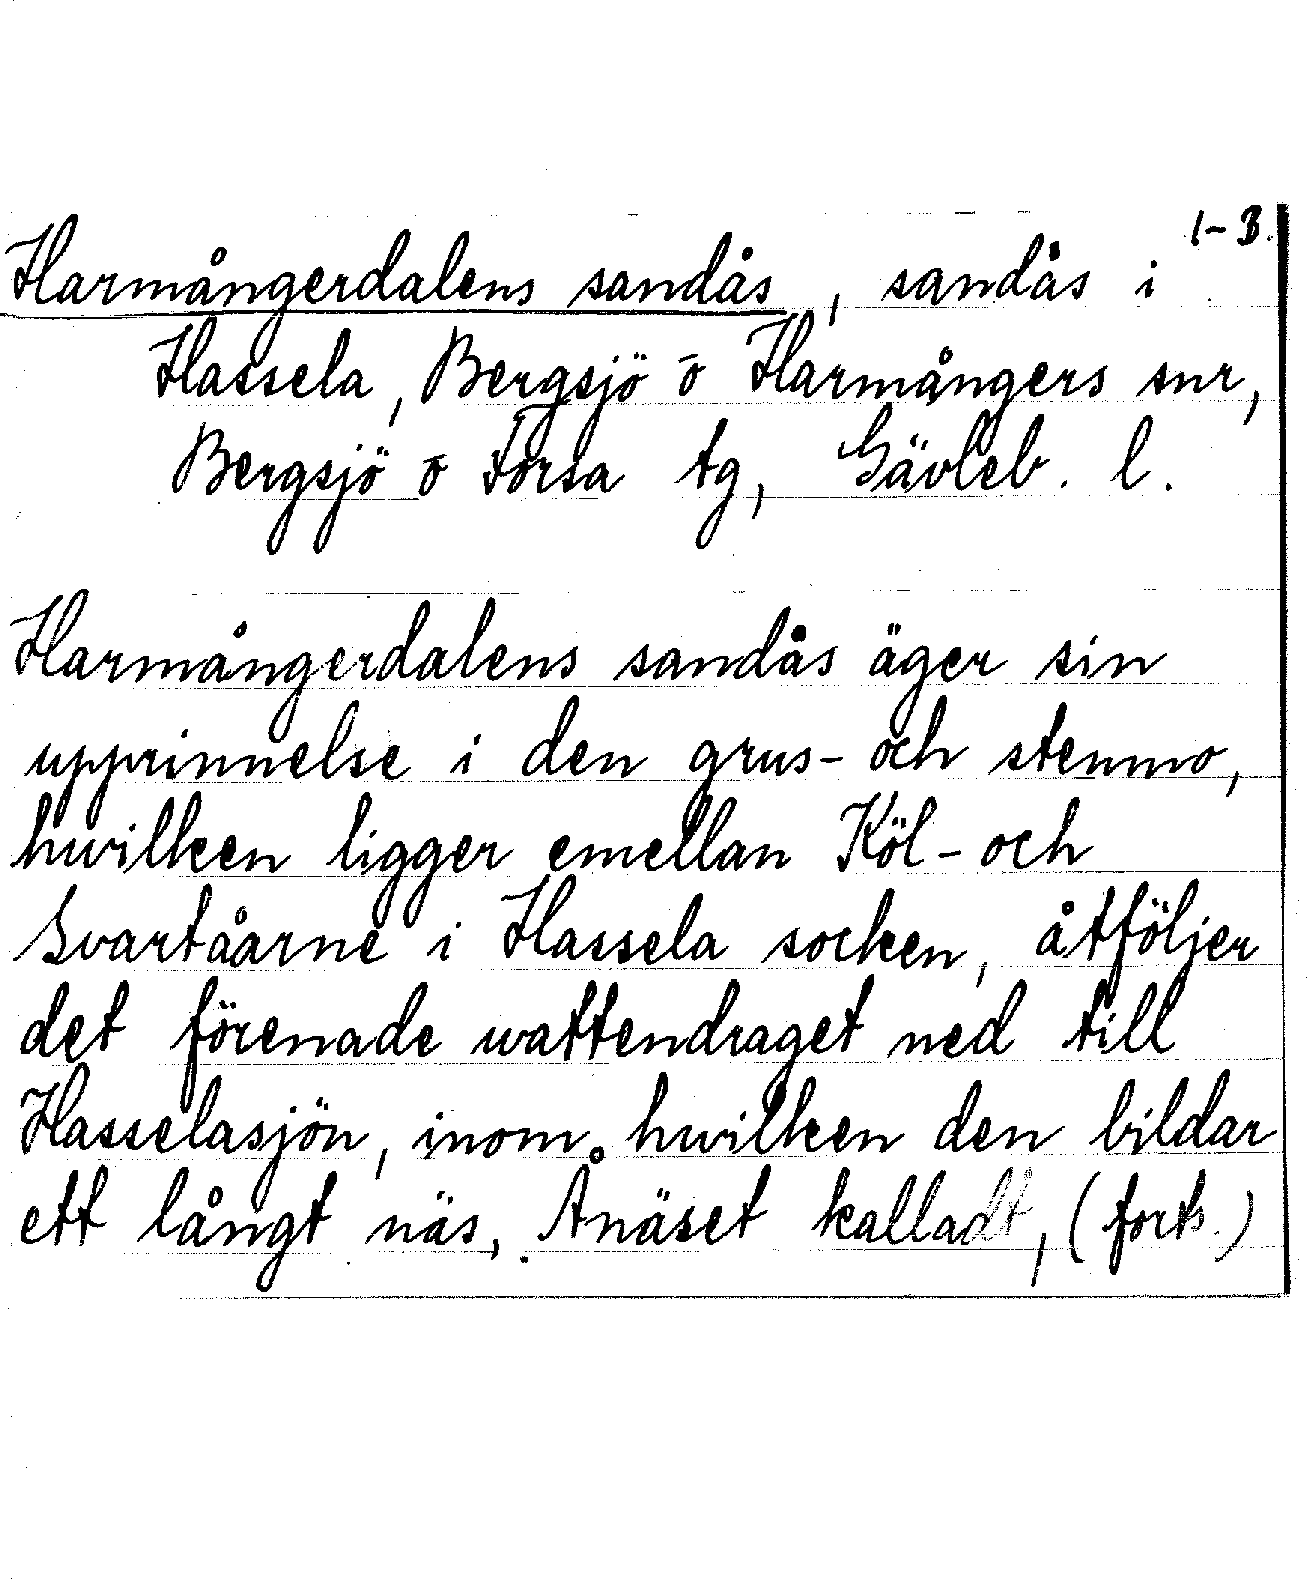 1-3.
Harmångerdalens sandås, sandås i
Hassela, Bergsjö o Harmångers snr,
Bergsjö o Forsa tg, Gävleb. l.
Harmångerdalens sandås äger sin
upprinnelse i den grus- och stenmo,
hwilken ligger emellan Köl- och
Svartåarne i Hassela socken, åtföljer
det förenade wattendraget ned till
Hasselasjön, inom hwilken den bildar
ett långt näs, Ånäset kalladt, (forts.)